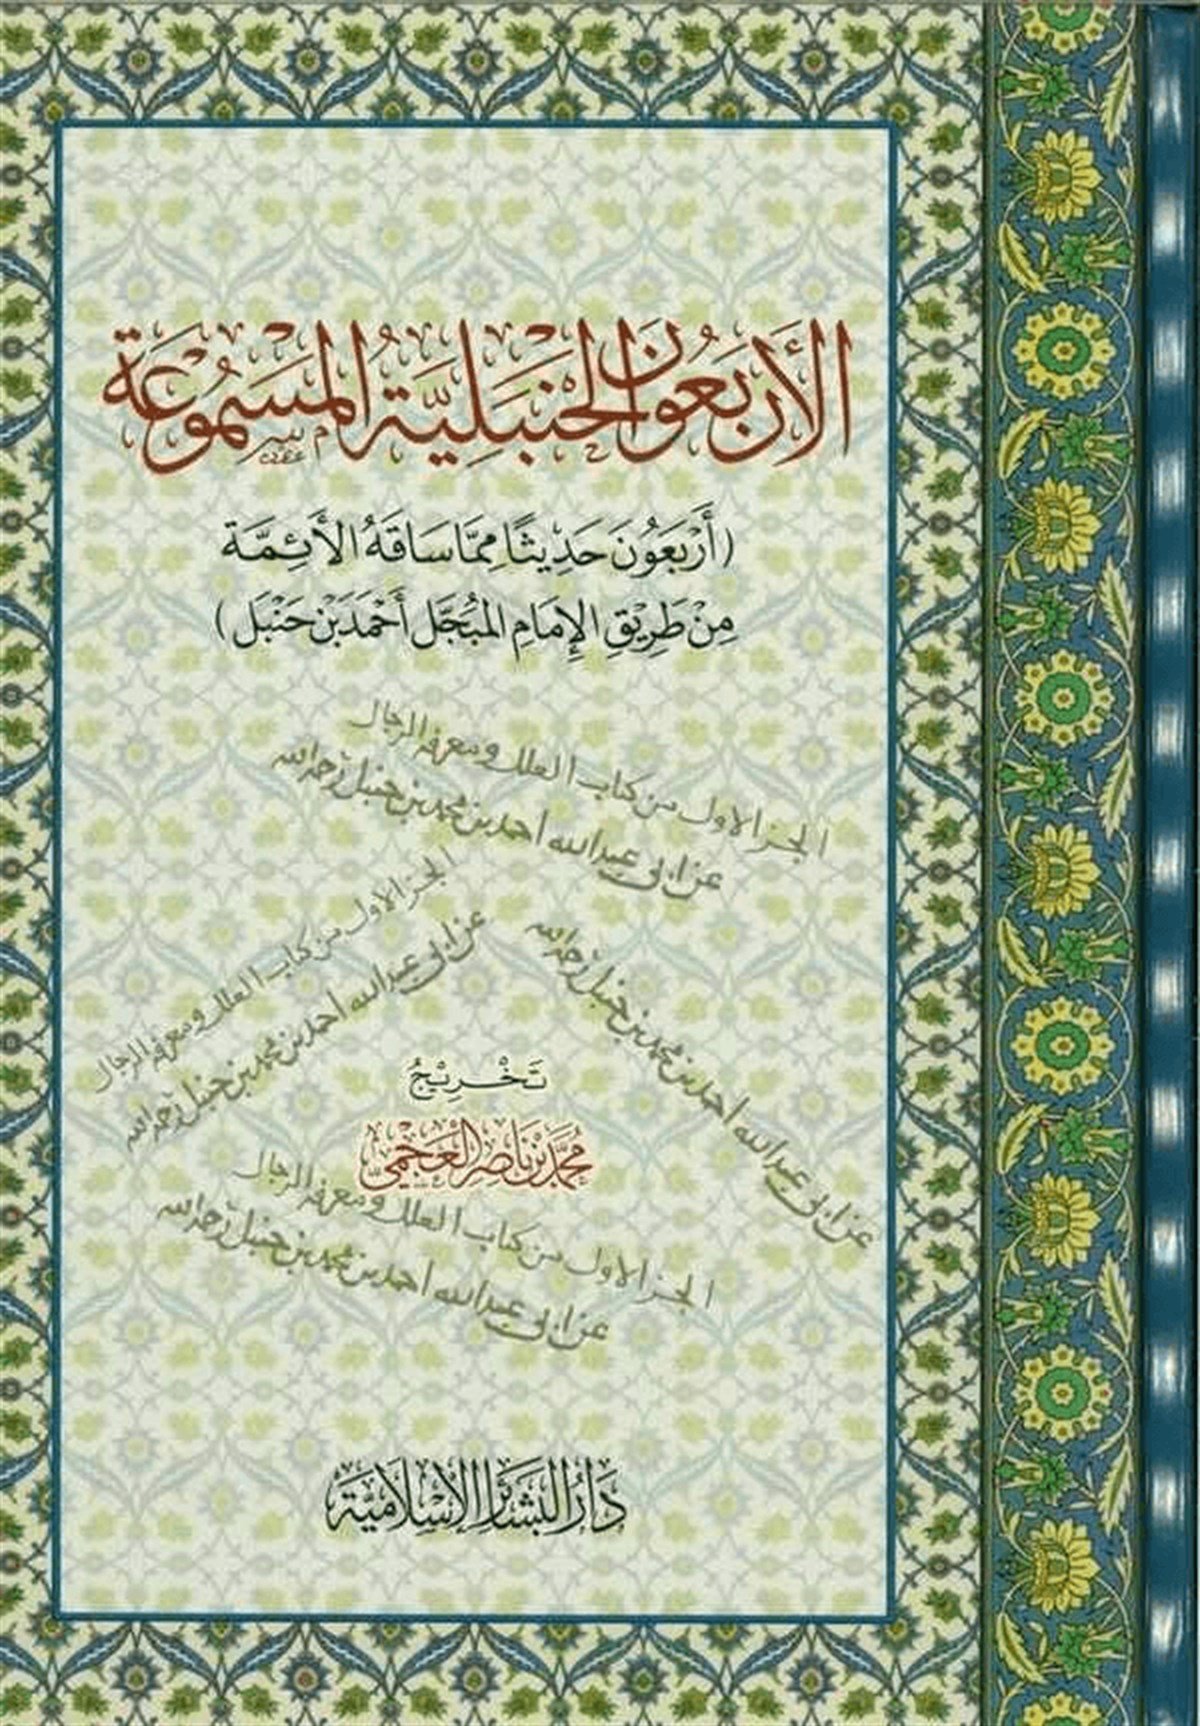 الأَرْبَعُونَ الحَنْبَلِيَّةُ المَسْمُوعَة
(أَرْبَعُونَ حَدِيثًا مِمَّا سَاقَهُ الأَئِمَّة
مِنْ طَرِيقِ الإِمَامِ المُبَجَّلِ أَحْمَدَ بْنِ حَنْبَل)
الجز الاول من كتاب العلل ومعرفه الرجال
عن ابي عبدالله احمد بن محمد بن حنبل رحمه الله
الجز الاول من كتاب العلل ومعرفه الرجال
عن ابي عبدالله احمد بن محمد بن حنبل رحمه الله
عن ابي عبدالله احمد بن محمد بن حنبل رحمه الله
تَخْرِيْجُ
مُحَمَّد بْن نَاصِر العَجْمِيّ
الجز الاول من كتاب العلل ومعرفه الرجال
عن ابي عبدالله احمد بن محمد بن حنبل رحمه الله
دَارُ البَشَائِرِ الإِسْلَامِيَّة